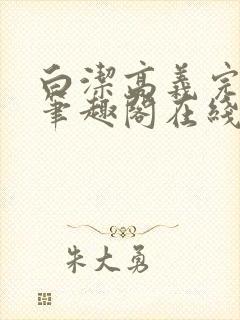 白潔高義完
筆趣閣在綫
朱大勇